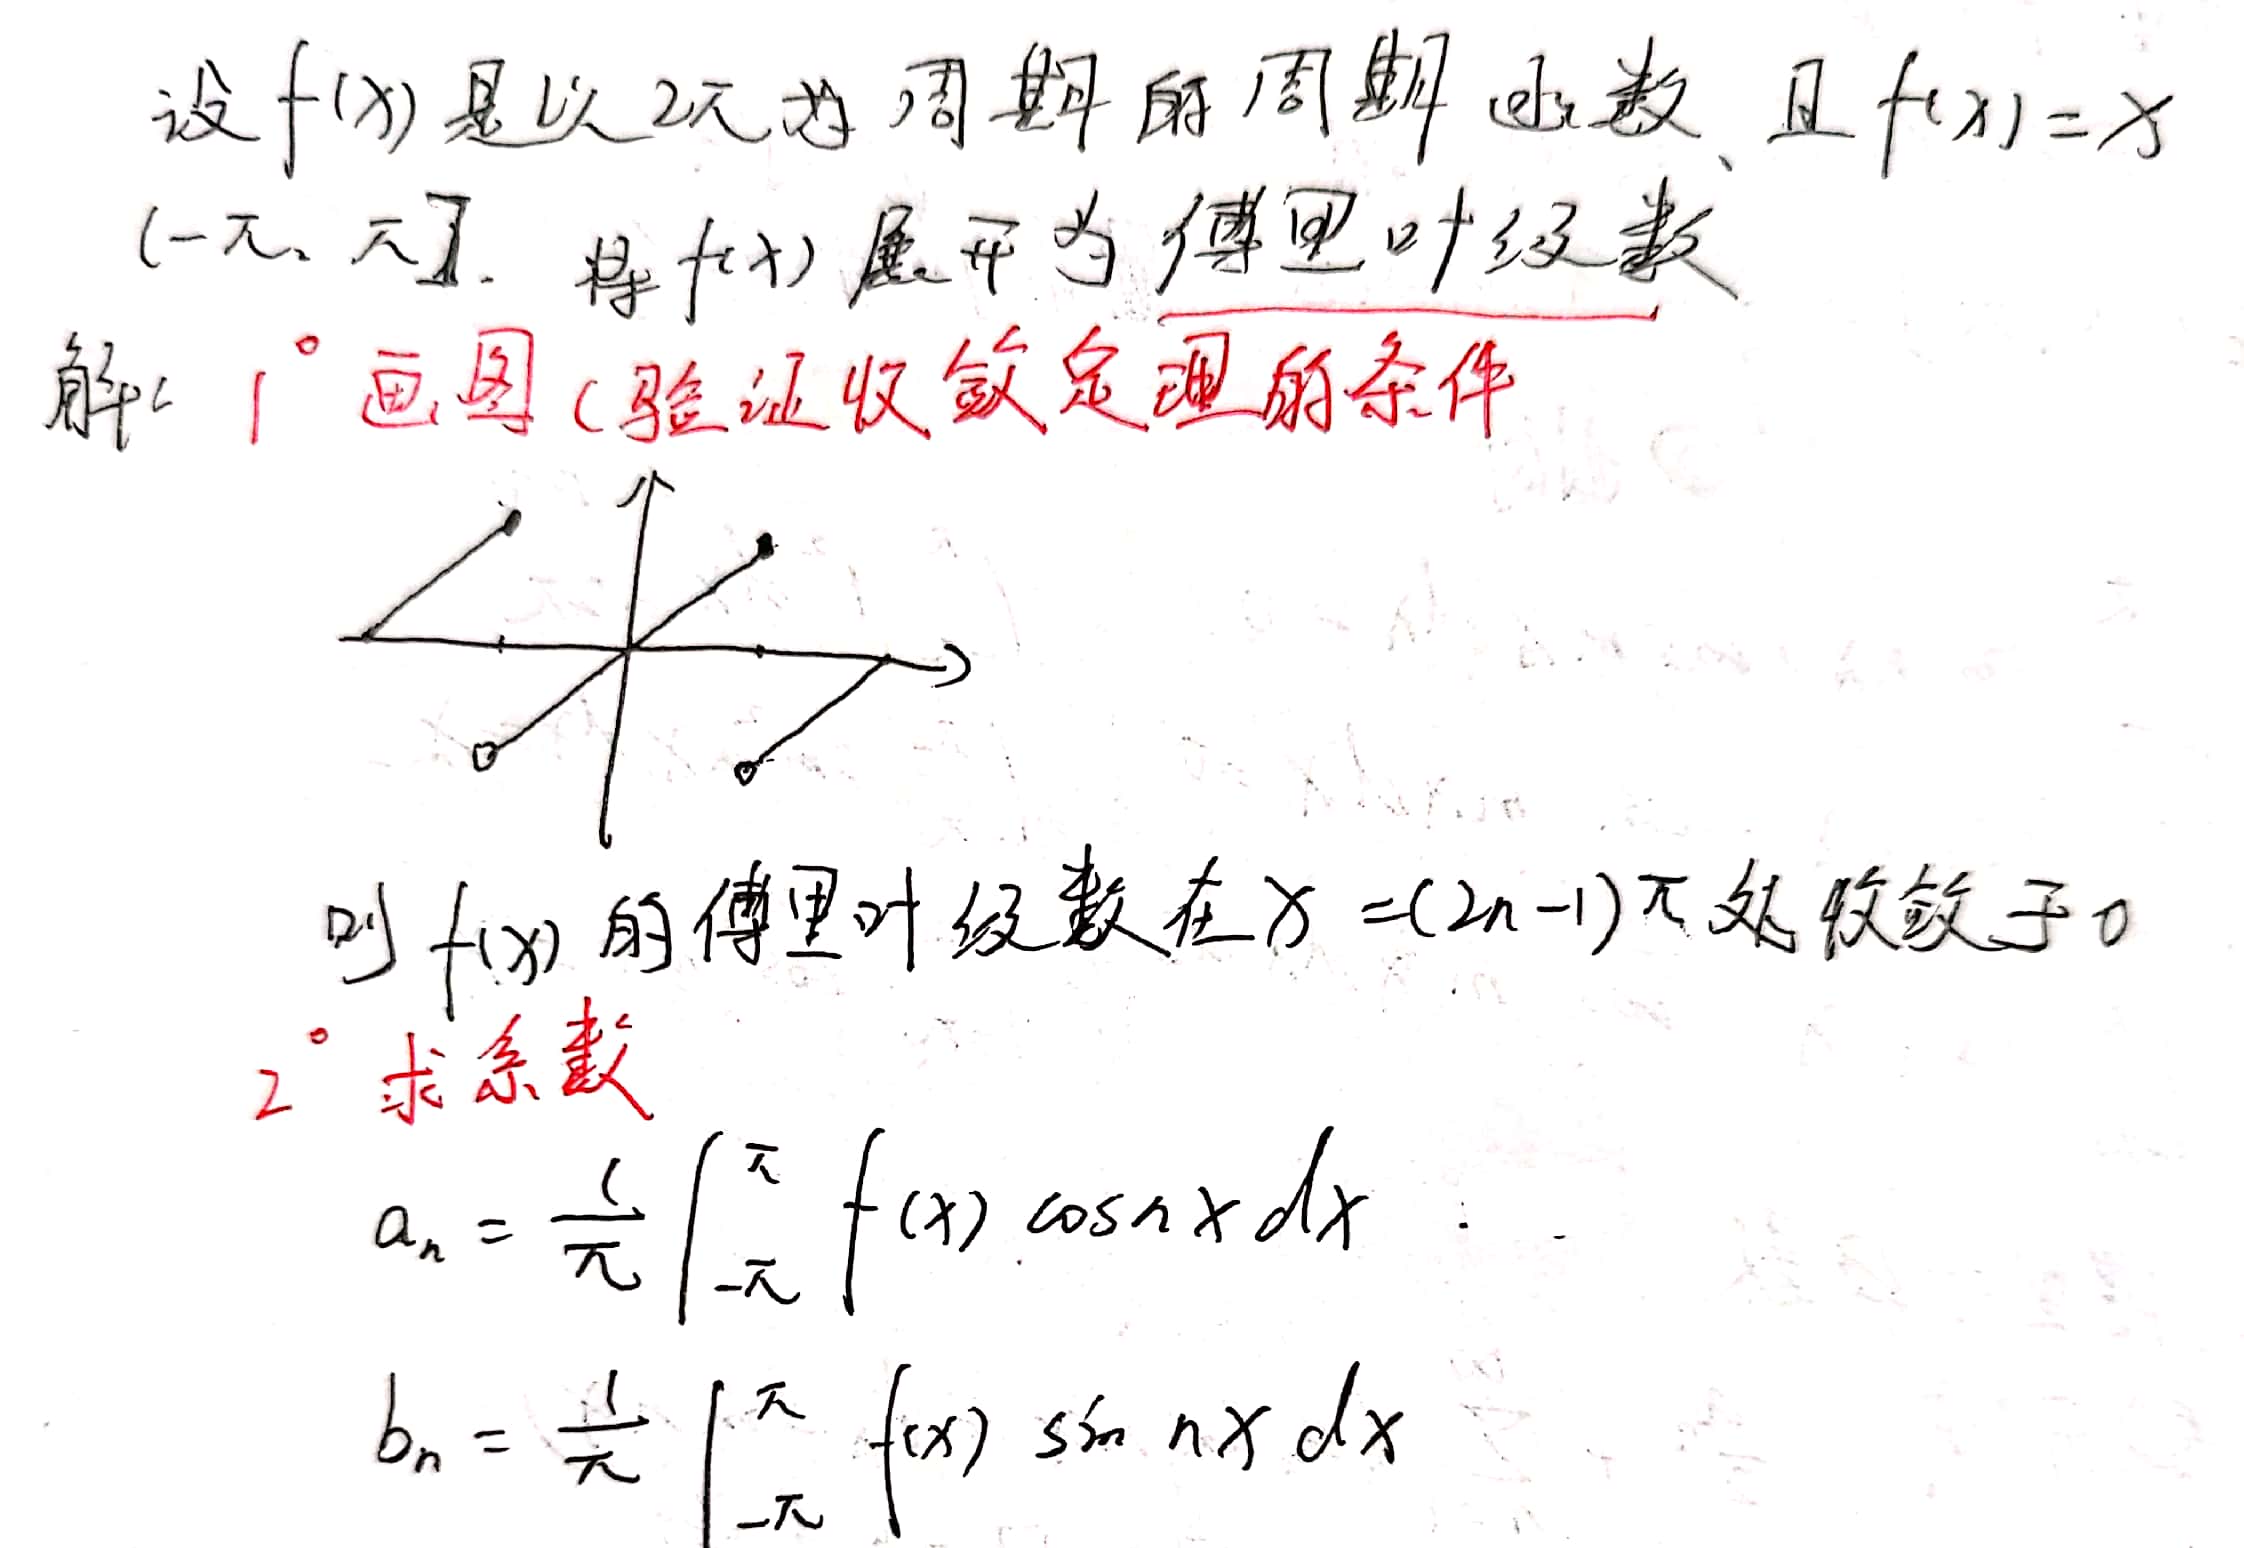 设f(x)是以2π为周期的周期函数、且f(x)=x
(-π、π]. 将f(x)展开为傅里叶级数
解: 1° 画图(验证收敛定理的条件
则f(x)的傅里叶级数在x=(2n-1)π处收敛于0
2° 求系数
aₙ = 1/π ∫_{-π}^{π} f(x) cosnx dx
bₙ = 1/π ∫_{-π}^{π} f(x) sin nx dx